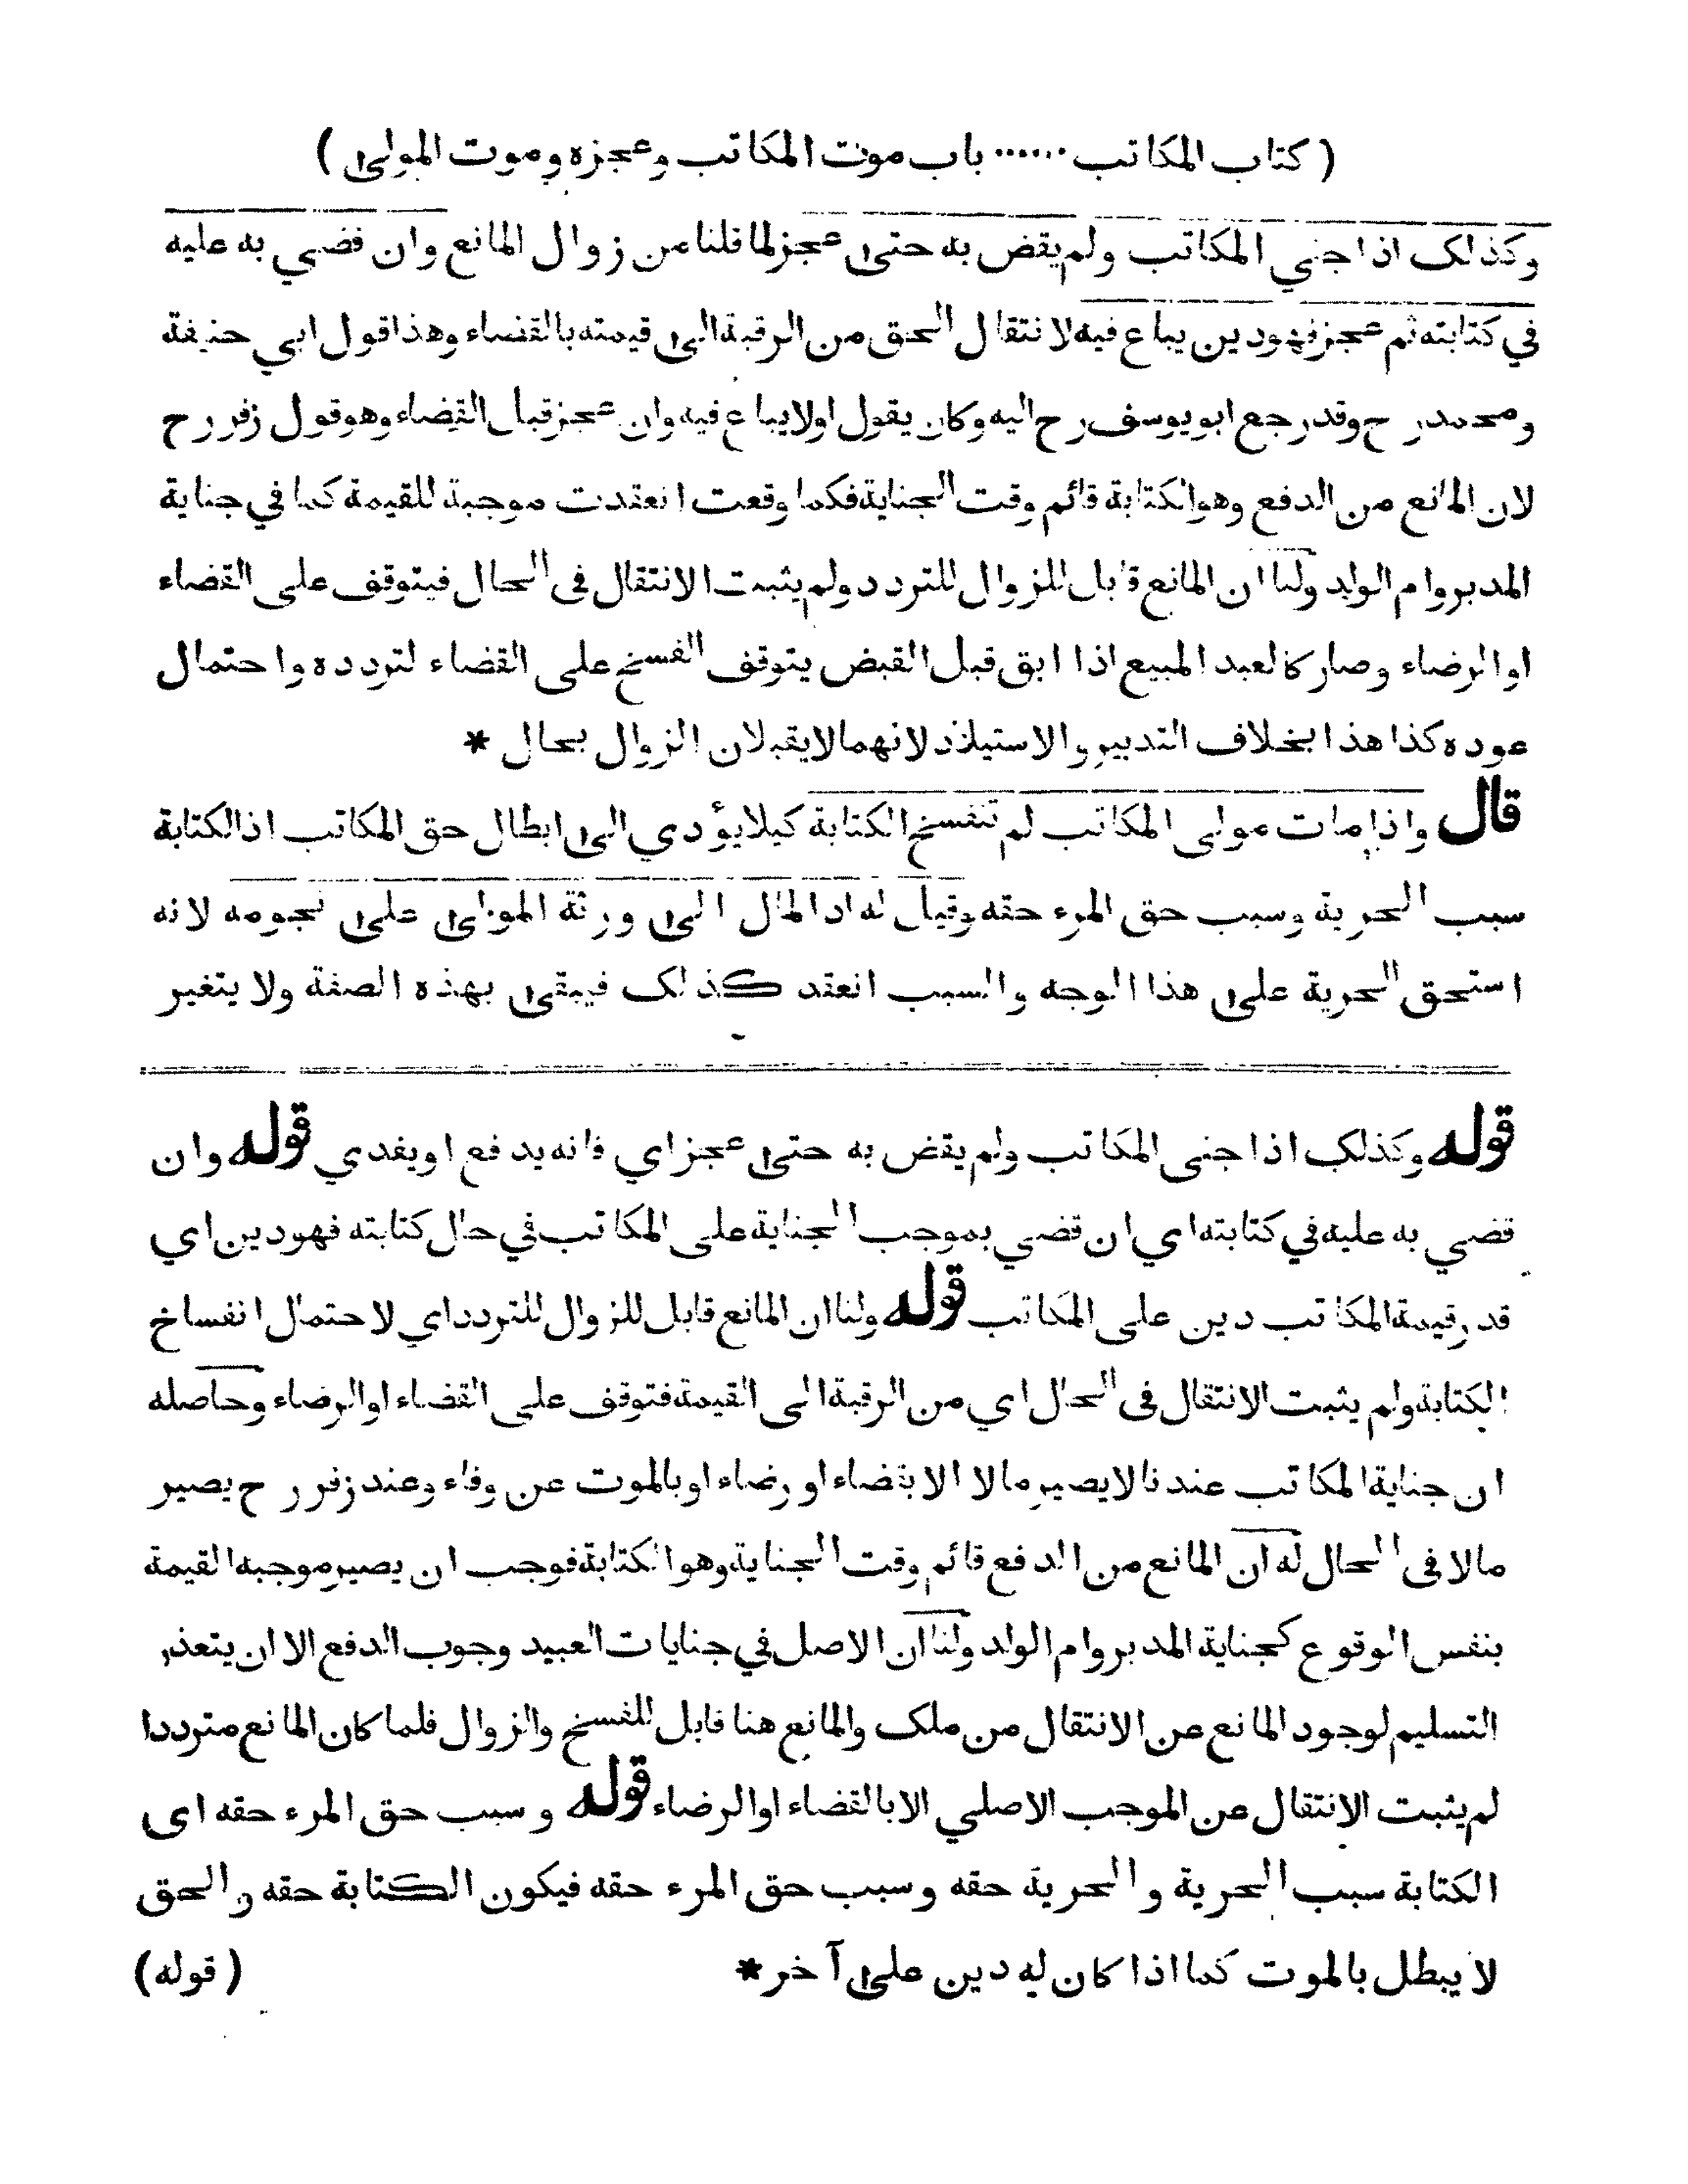 ( كتاب المكاتب ...... باب موت المكاتب وعجزه وموت المولى )
وكذلك اذا جنى المكاتب ولم يقض به حتى عجز لما قلنا من زوال المانع وان قضي به عليه
في كتابته ثم عجز فهو دين يباع فيه لانتقال الحق من الرقبة الى قيمته بالقضاء وهذا قول ابي حنيفة
ومحمد رح وقد رجع ابو يوسف رح اليه وكان يقول اولا يباع فيه وان عجز قبل القضاء وهو قول زفر رح
لان المانع من الدفع وهو الكتابة قائم وقت الجناية فكما وقعت انعقدت موجبة للقيمة كما في جناية
المدبر وام الولد ولنا ان المانع قابل للزوال للتردد ولم يثبت الانتقال في الحال فيتوقف على القضاء
او الرضاء وصار كالعبد المبيع اذا ابق قبل القبض يتوقف الفسخ على القضاء لتردده واحتمال
عوده كذا هذا بخلاف التدبير والاستيلاد لانهما لا يقبلان الزوال بحال *
قال واذا مات مولى المكاتب لم تنفسخ الكتابة كيلا يؤدي الى ابطال حق المكاتب اذ الكتابة
سبب الحرية وسبب حق المرء حقه وقيل له اد المال الى ورثة المولى على نجومه لانه
استحق الحرية على هذا الوجه والسبب انعقد كذلك فيبقى بهذه الصفة ولا يتغير
قوله وكذلك اذا جنى المكاتب ولم يقض به حتى عجز اي فانه يدفع او يفدي قوله وان
قضي به عليه في كتابته اي ان قضي بموجب الجناية على المكاتب في حال كتابته فهو دين اي
قدر قيمة المكاتب دين على المكاتب قوله ولنا ان المانع قابل للزوال للتردد اي لاحتمال انفساخ
الكتابة ولم يثبت الانتقال في الحال اي من الرقبة الى القيمة فتوقف على القضاء او الرضاء وحاصله
ان جناية المكاتب عندنا لا يصير مالا الا بقضاء او رضاء او بالموت عن وفاء وعند زفر رح يصير
مالا في الحال له ان المانع من الدفع قائم وقت الجناية وهو الكتابة فوجب ان يصير موجبه القيمة
بنفس الوقوع كجناية المدبر وام الولد ولنا ان الاصل في جنايات العبيد وجوب الدفع الا ان يتعذر
التسليم لوجود المانع عن الانتقال من ملك والمانع هنا قابل للفسخ والزوال فلما كان المانع مترددا
لم يثبت الانتقال عن الموجب الاصلي الا بالقضاء او الرضاء قوله وسبب حق المرء حقه اى
الكتابة سبب الحرية والحرية حقه وسبب حق المرء حقه فيكون الكتابة حقه والحق
لا يبطل بالموت كما اذا كان له دين على آخر * ( قوله )